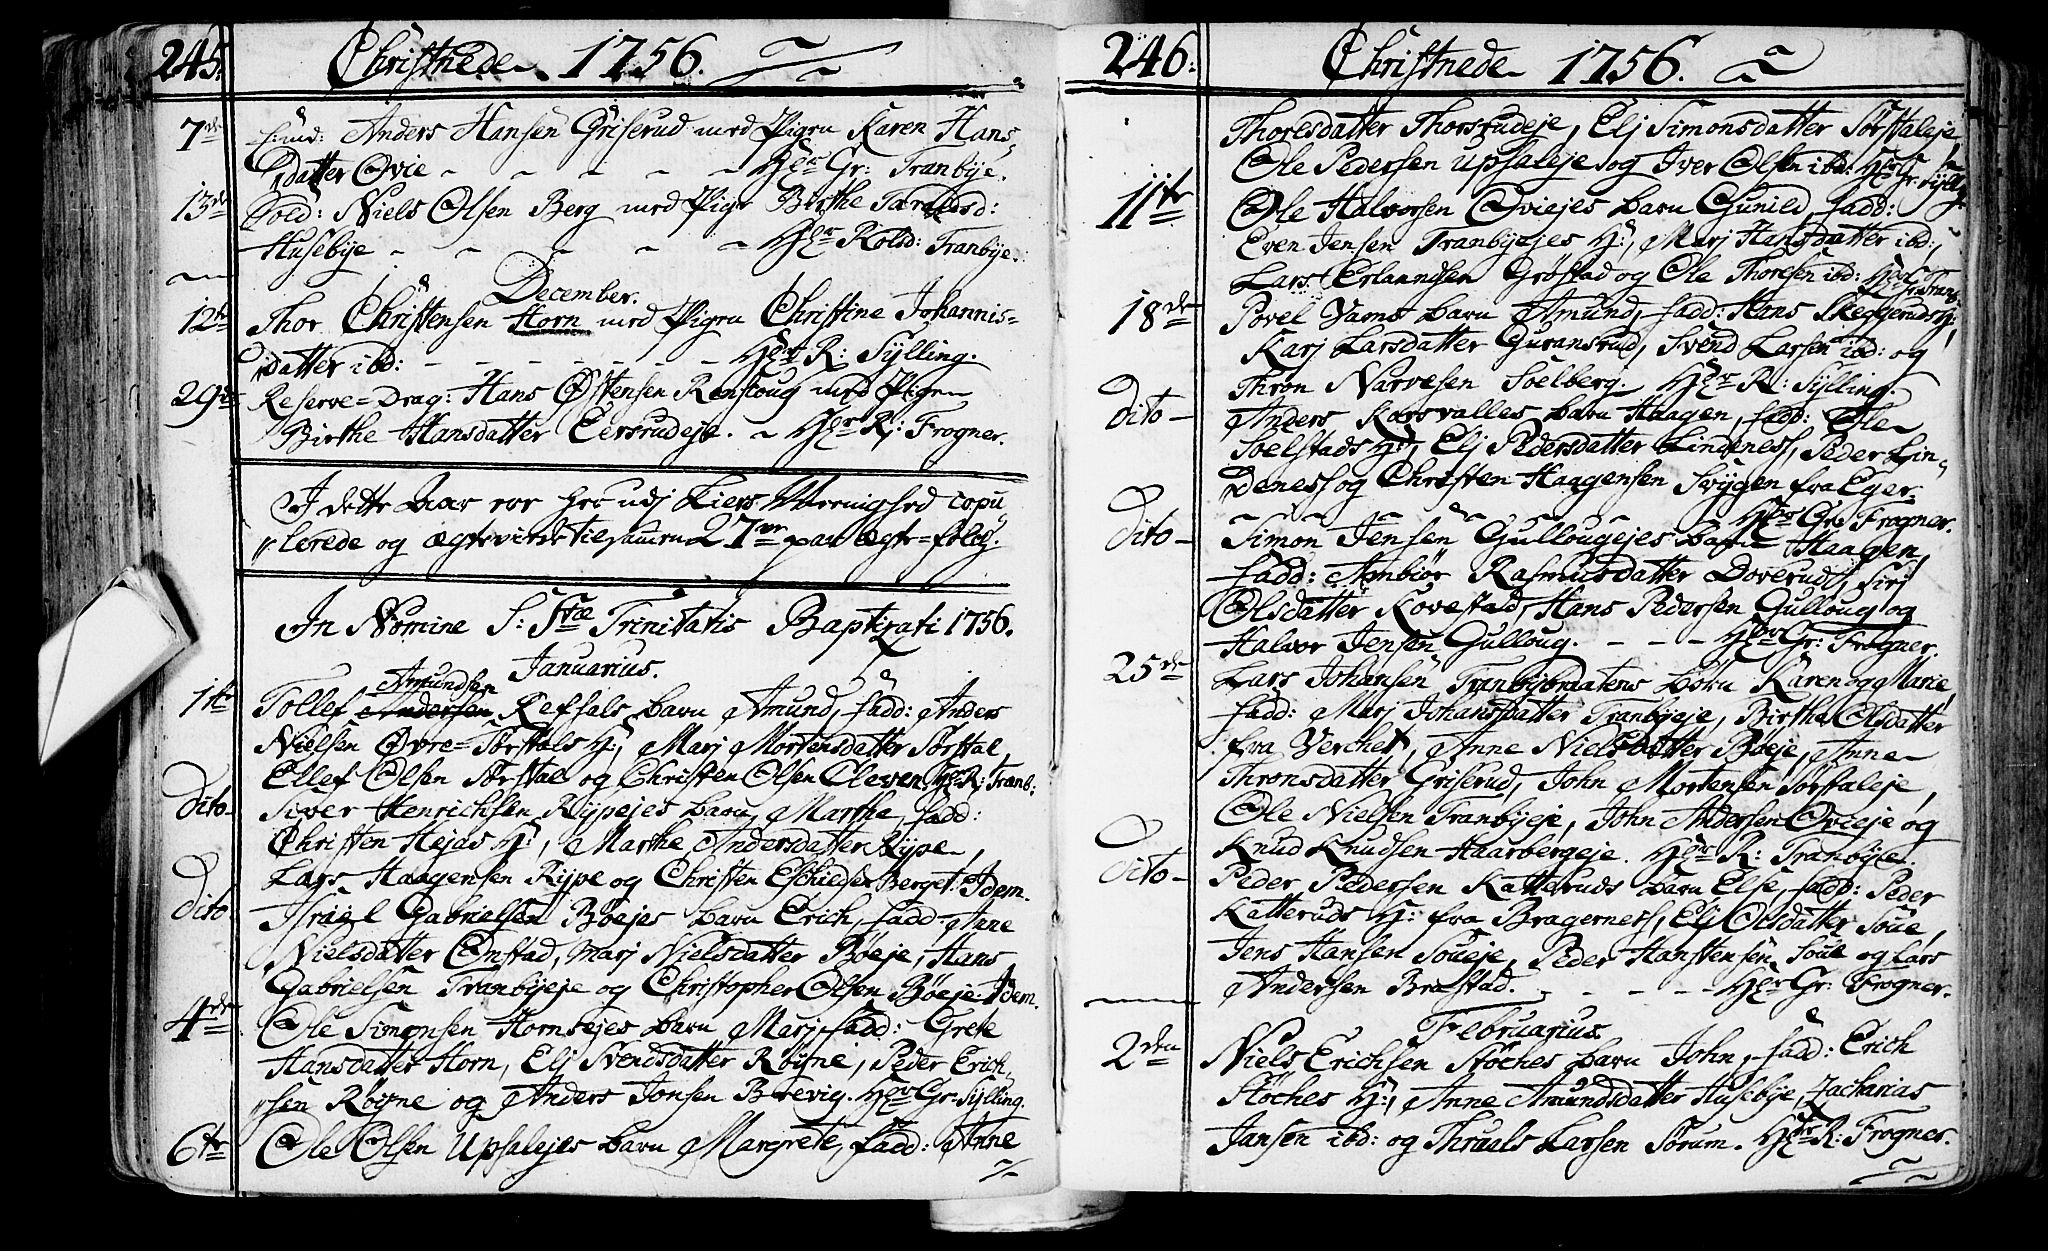 245. Christnede 1756.
7de Amd: Anders Hansen Griserud med Pigen Karen Hans-
datter Ovie - - - - - Hr Gr: Tranbye.
13de Sold: Niels Olsen Berg med Pige Birthe Taraldsd:
Husebye - - - - - Hr Kolsd: Tranbye.
December.
12te Thor Christensen Horn med Pigen Christine Johannis-
datter ibd: - - - - - - Hr R: Sylling.
29de Reserve-Drag: Hans Østensen Renskoug med Pigen
Birthe Hansdatter Eersrudeje. - Hr R: Frogner.
I dette Aar er her udj Liers Menighed copu
lerede og ægteviede tilsammen 27ve par ægte-folch.
In Nomine S: Stæ Trinitatis Baptizati 1756.
Januarius.
Amundsen
1te Tollef Andersen Refsals barn Amund, fadd: Anders
Nielsen Øvre-Sørstals H:, Marj Mortensdatter Sørstal,
Ellef Olsen Sørstal og Christen Olsen Cleven Hr R: Tranb:
Dito- Siver Henrichsen Rypejes barn Marthe, fadd:
Christen Hejas H:, Marthe Andersdatter Rype,
Lars Haagensen Rype og Christen Eschildsen Berget. Idem.
Dito- Israel Gabrielsen Bøejes barn Erich, fadd: Anne
Nielsdatter Enstad, Marj Nielsdatter Bøeje, Hans
Gabrielsen Tranbyeje og Christopher Olsen Bøeje. Idem.
4de Ole Simonsen Hornsejes barn Marj fadd: Grete
Hansdatter Horn, Elj Svendsdatter Røyne, Peder Erich-
sen Røyne og Anders Jonsen Brevig. Hr Gr: Sylling.
6te Ole Olsen Upsalejes barn Margrete, fadd: Anne
246. Christnede 1756.
Thoresdatter Thorsrudeje, Elj Simonsdatter Sørstaleje
Ole Pedersen Upsaleje og Iver Olsen ibd: Hr Gr: Sylling
11te Ole Halvorsen Oviejes barn Gunild, fadd:
Even Jensen Tranbyejes H:, Marj Hansdatter ibd:,
Lars Erlandsen Grøstad og Ole Thoresen ibd: Hr Gr: Tranb:
18de Povel Vams barn Amund, fadd: Hans Skeggeruds H:,
Karj Larsdatter Guransrud, Svend Larsen ibd: og
Thron Narvesen Soelberg. Hr R: Sylling.
Dito- Anders Korsvalles barn Haagen, fadd: Ole
Soelstads H:, Elj Pedersdatter Lindenes, Peder Lin-
denes og Christen Haagensen Svygen fra Eger-
Hr Gr: Frogner.
Dito- Simon Jensen Gullougejes barn Haagen,
fadd: Anbiør Rasmusdatter Doverud, Sirj
Olsdatter Kovestad, Hans Pedersen Gulloug og
Halvor Jensen Gulloug. - - - Hr Gr: Frogner.
25de Lars Johansen Tranbybraatens børn Karen og Marie
fadd: Marj Johansdatter Tranbyeje, Birthe Olsdatter
fra Verchet, Anne Nielsdatter Bøeje, Anne
Thronsdatter Griserud, John Mortensen Sørstaleje,
Ole Nielsen Tranbyeje, John Andersen Ovieje og
Knud Knudsen Haarbergeje. Hr R: Tranbye.
Dito- Peder Pedersen Katteruds barn Else, fadd: Peder
Katteruds H: fra Bragernes, Elj Olsdatter Soue,
Jens Hansen Soueje, Peder Hanstensen Soue og Lars
Andersen Brastad. - - - - Hr Gr: Frogner.
Februarius.
2den Niels Erichsen Støches barn John, fadd: Erich
Støches H:, Anne Amundsdatter Husebye, Zacharias
Jansen ibd: og Thruls Larsen Sørum. Hr R: Frogner.